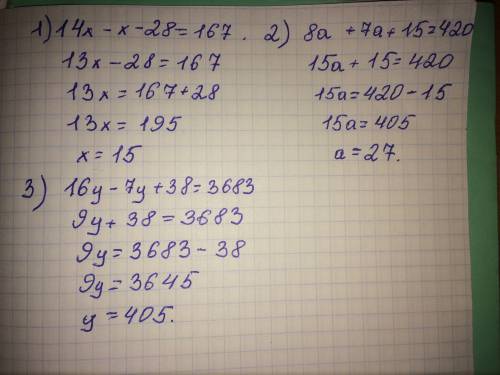 1) 14x - x - 28 = 167.
13x - 28 = 167
13x = 167 + 28
13x = 195
x = 15
2) 8a + 7a + 15 = 420
15a + 15 = 420
15a = 420 - 15
15a = 405
a = 27.
3) 16y - 7y + 38 = 3683
9y + 38 = 3683
9y = 3683 - 38
9y = 3645
y = 405.